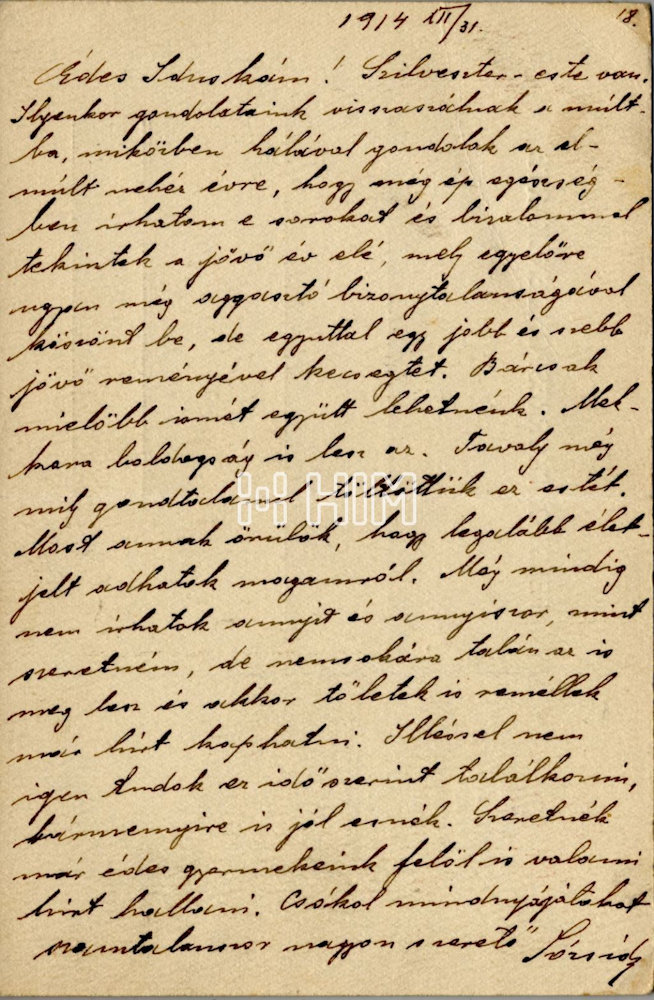 18.
1914 XII/31.
Édes Iduskám! Szilveszter-este van.
Ilyenkor gondolataink visszaszálnak a múlt-
ba, miközben hálával gondolok az el-
múlt nehéz évre, hogy még ép egészség-
ben írhatom e sorokat és bizalommal
tekintek a jövő év elé, mely egyelőre
ugyan még aggasztó bizonytalanságával
köszönt be, de egyuttal egy jobb és szebb
jövő reményével kecsegtet. Bárcsak
mielőbb ismét együtt lehetnénk. Mek-
kora boldogság is lesz az. Tavaly még
mily gondtalanul töltöttük ez estét.
Most annak örülök, hogy legalább élet-
jelt adhatok magamról. Még mindig
nem írhatok annyit és annyiszor, mint
szeretném, de nemsokára talán az is
meg lesz és akkor tőletek is remélek
már hírt kaphatni. Illéssel nem
igen tudok ez időszerint találkozni,
bármennyire is jól esnék. Szeretnék
már édes gyermekeink felöl is valami
hírt hallani. Csókol mindnyájatokat
számtalanszor nagyon szerető
HIM